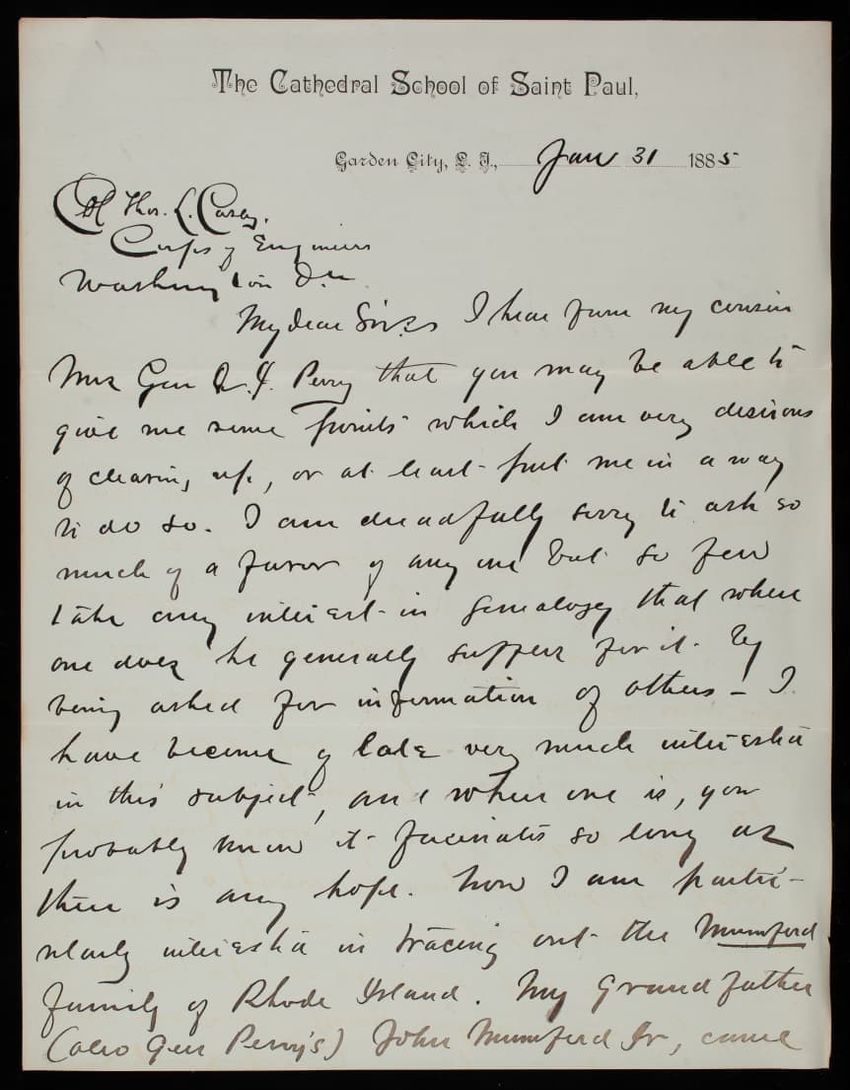 The Cathedral School of Saint Paul,
Garden City, L. I., Jan 31 1885
Col Thos. L. Casey.
Corps of Engineers
Washington D.C.
My dear Sir I hear from my cousin
Mrs Gen A. J. Perry that you may be able to
give me some "points" which I am very desirous
of clearing up, or at least put me in a way
to do so. I am dreadfully sorry to ask so
much of a favor of any one but so few
take any interest in genealogy that when
one does he generally suffers for it. By
being asked for information of others – I
have become of late very much interested
in this subject, and when one is, you
probably know it fascinates so long as
there is any hope. Now I am partic-
ularly interested in tracing out the Mumford
family of Rhode Island. My Grandfather
(also Gen Perry's) John Mumford Jr, came